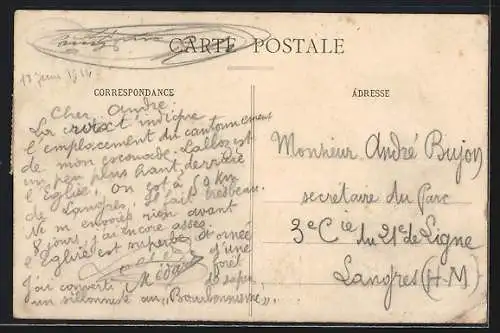 CARTE POSTALE
CORRESPONDANCE
ADRESSE
Cher André.
La croix t indique
l'emplacement du cantonnement
de mon escouade. est
un peu plus haut, derrière
l'Eglise. On est à 60 km
de Langres, Il fait tres beau.
Ne m'envoies rien avant
8 jours, j'ai encore assez.
L'Eglise est superbe et ornée
d'une
forêt
J'ai converti Médard de sapin.
un sillonniste au "Bourbonnisme".
Monsieur André Bujon
secretaire du Parc
3e Cie du 21e de Ligne
Langres (H-M)